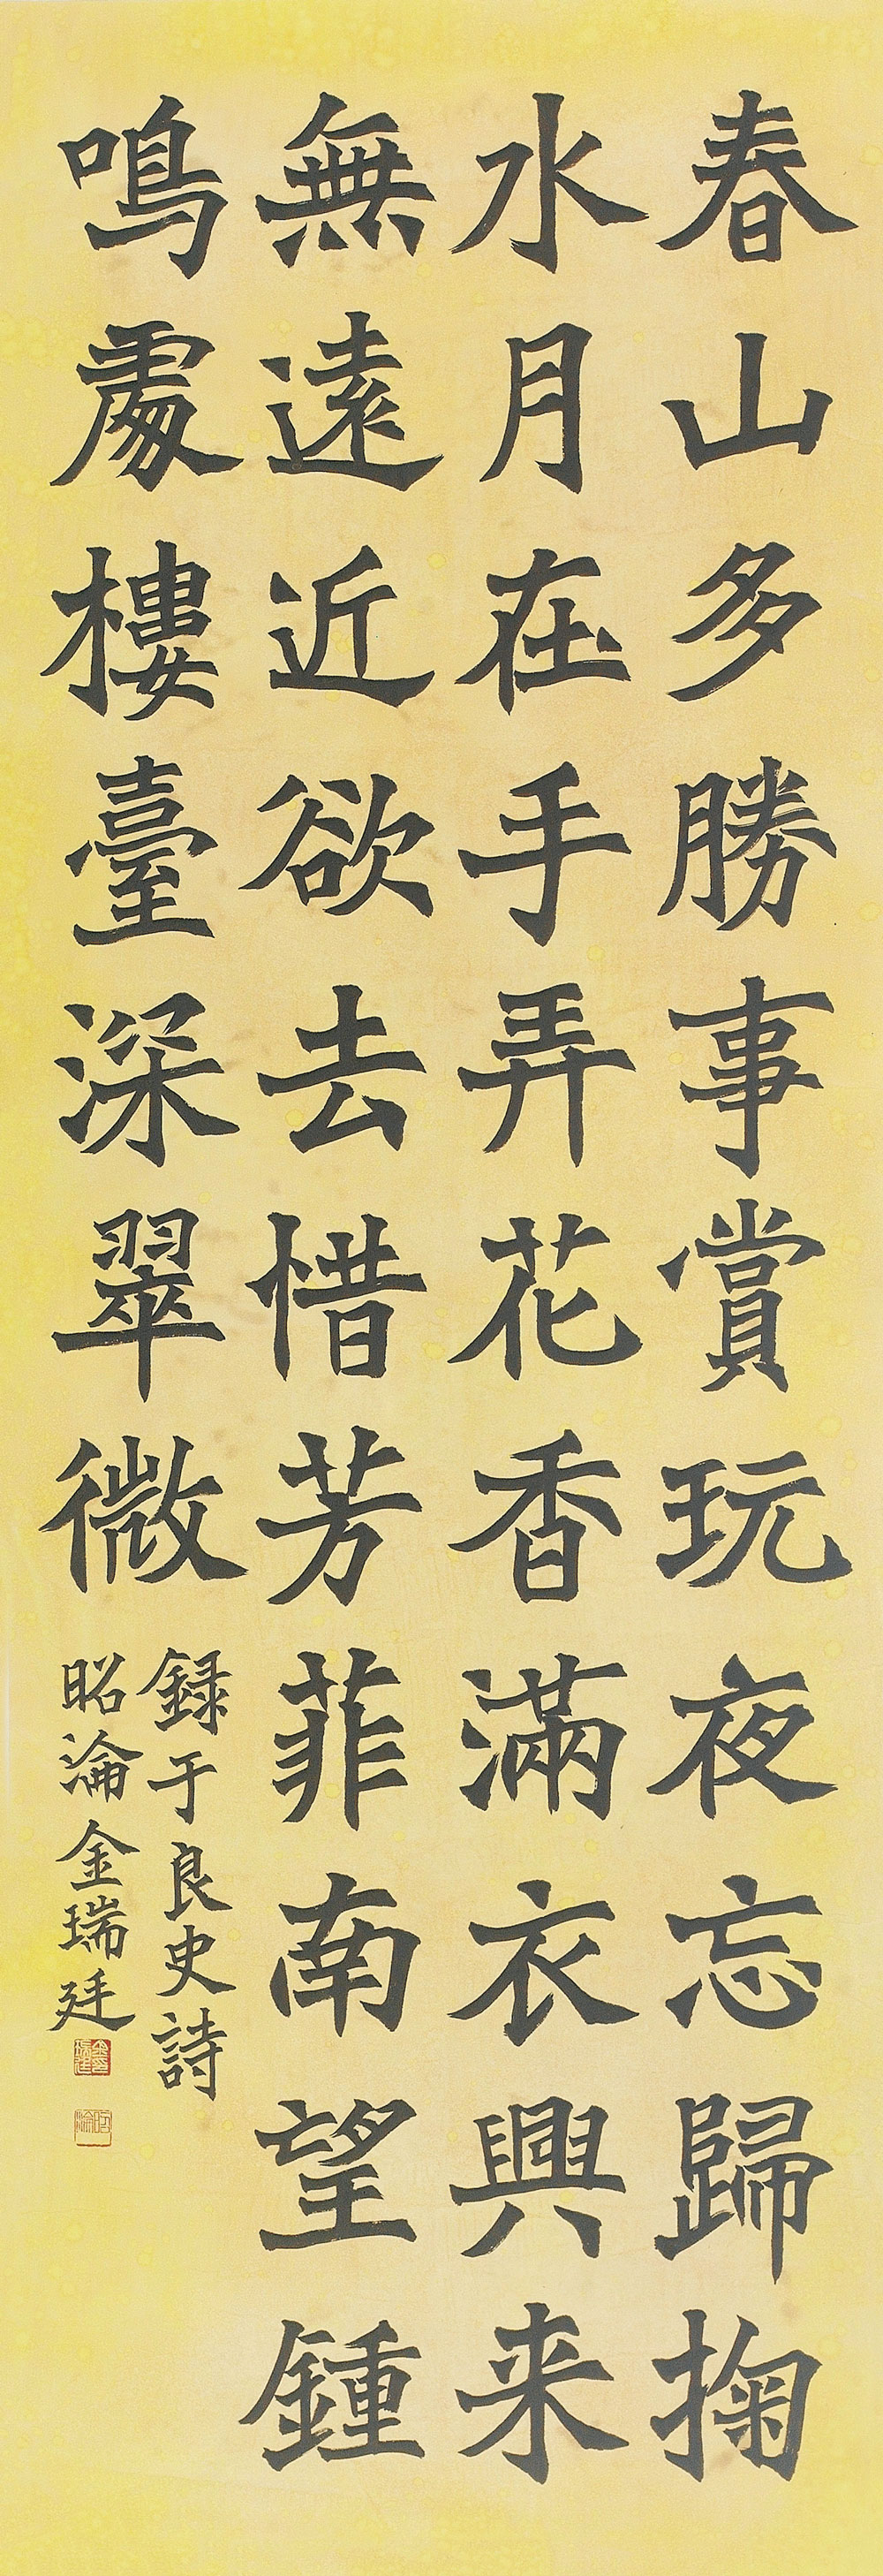 春山多勝事賞玩夜忘歸掬
水月在手弄花香滿衣興来
無遠近欲去惜芳菲南望鍾
鳴處樓臺深翠微
録于良史詩
昭淪金瑞廷